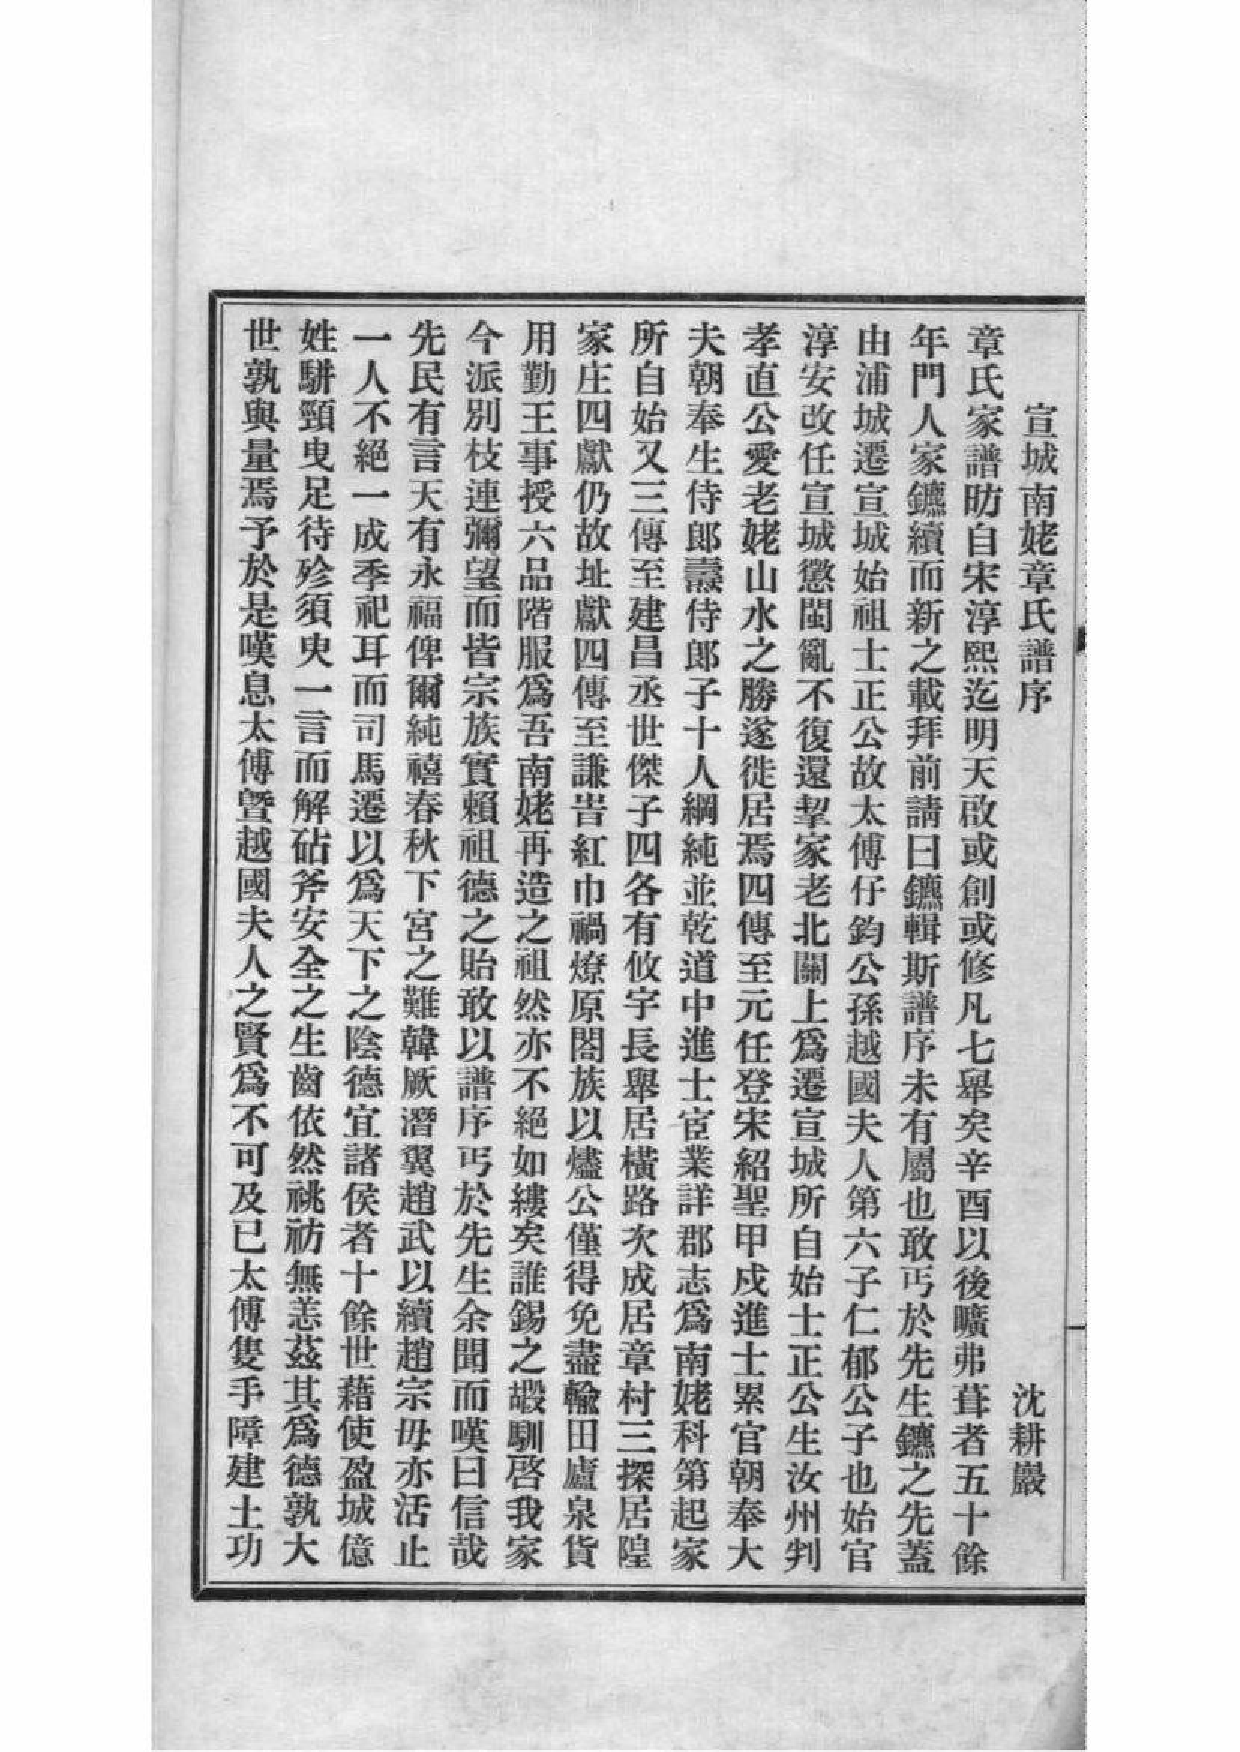 宣城南姥章氏譜序 沈耕巖
章氏家譜昉自宋淳熙迄明天啟或創或修凡七舉矣辛酉以後曠弗葺者五十餘
年門人家鑣續而新之載拜前請曰鑣輯斯譜序未有屬也敢丐於先生鑣之先蓋
由浦城遷宣城始祖士正公故太傅仔鈞公孫越國夫人第六子仁郁公子也始官
淳安改任宣城懲閩亂不復還挈家老北關上爲遷宣城所自始士正公生汝州判
孝直公愛老姥山水之勝遂徙居焉四傳至元任登宋紹聖甲戍進士累官朝奉大
夫朝奉生侍郎燾侍郎子十人綱純並乾道中進士宦業詳郡志爲南姥科第起家
所自始又三傳至建昌丞世傑子四各有攸宇長舉居橫路次成居章村三探居隍
家庄四獻仍故址獻四傳至謙旹紅巾禍燎原閤族以燼公僅得免盡輸田廬泉貨
用勤王事授六品階服爲吾南姥再造之祖然亦不絕如縷矣誰錫之嘏馴啓我家
今派別枝連彌望而皆宗族實賴祖德之貽敢以譜序丐於先生余聞而嘆曰信哉
先民有言天有永福俾爾純禧春秋下宮之難韓厥潛翼趙武以續趙宗毋亦活止
一人不絕一成季祀耳而司馬遷以爲天下之陰德宜諸侯者十餘世藉使盈城億
姓駢頸曳足待殄須臾一言而解砧斧安全之生齒依然祧祊無恙茲其爲德孰大
世孰與量焉予於是嘆息太傅曁越國夫人之賢爲不可及已太傅隻手障建土功